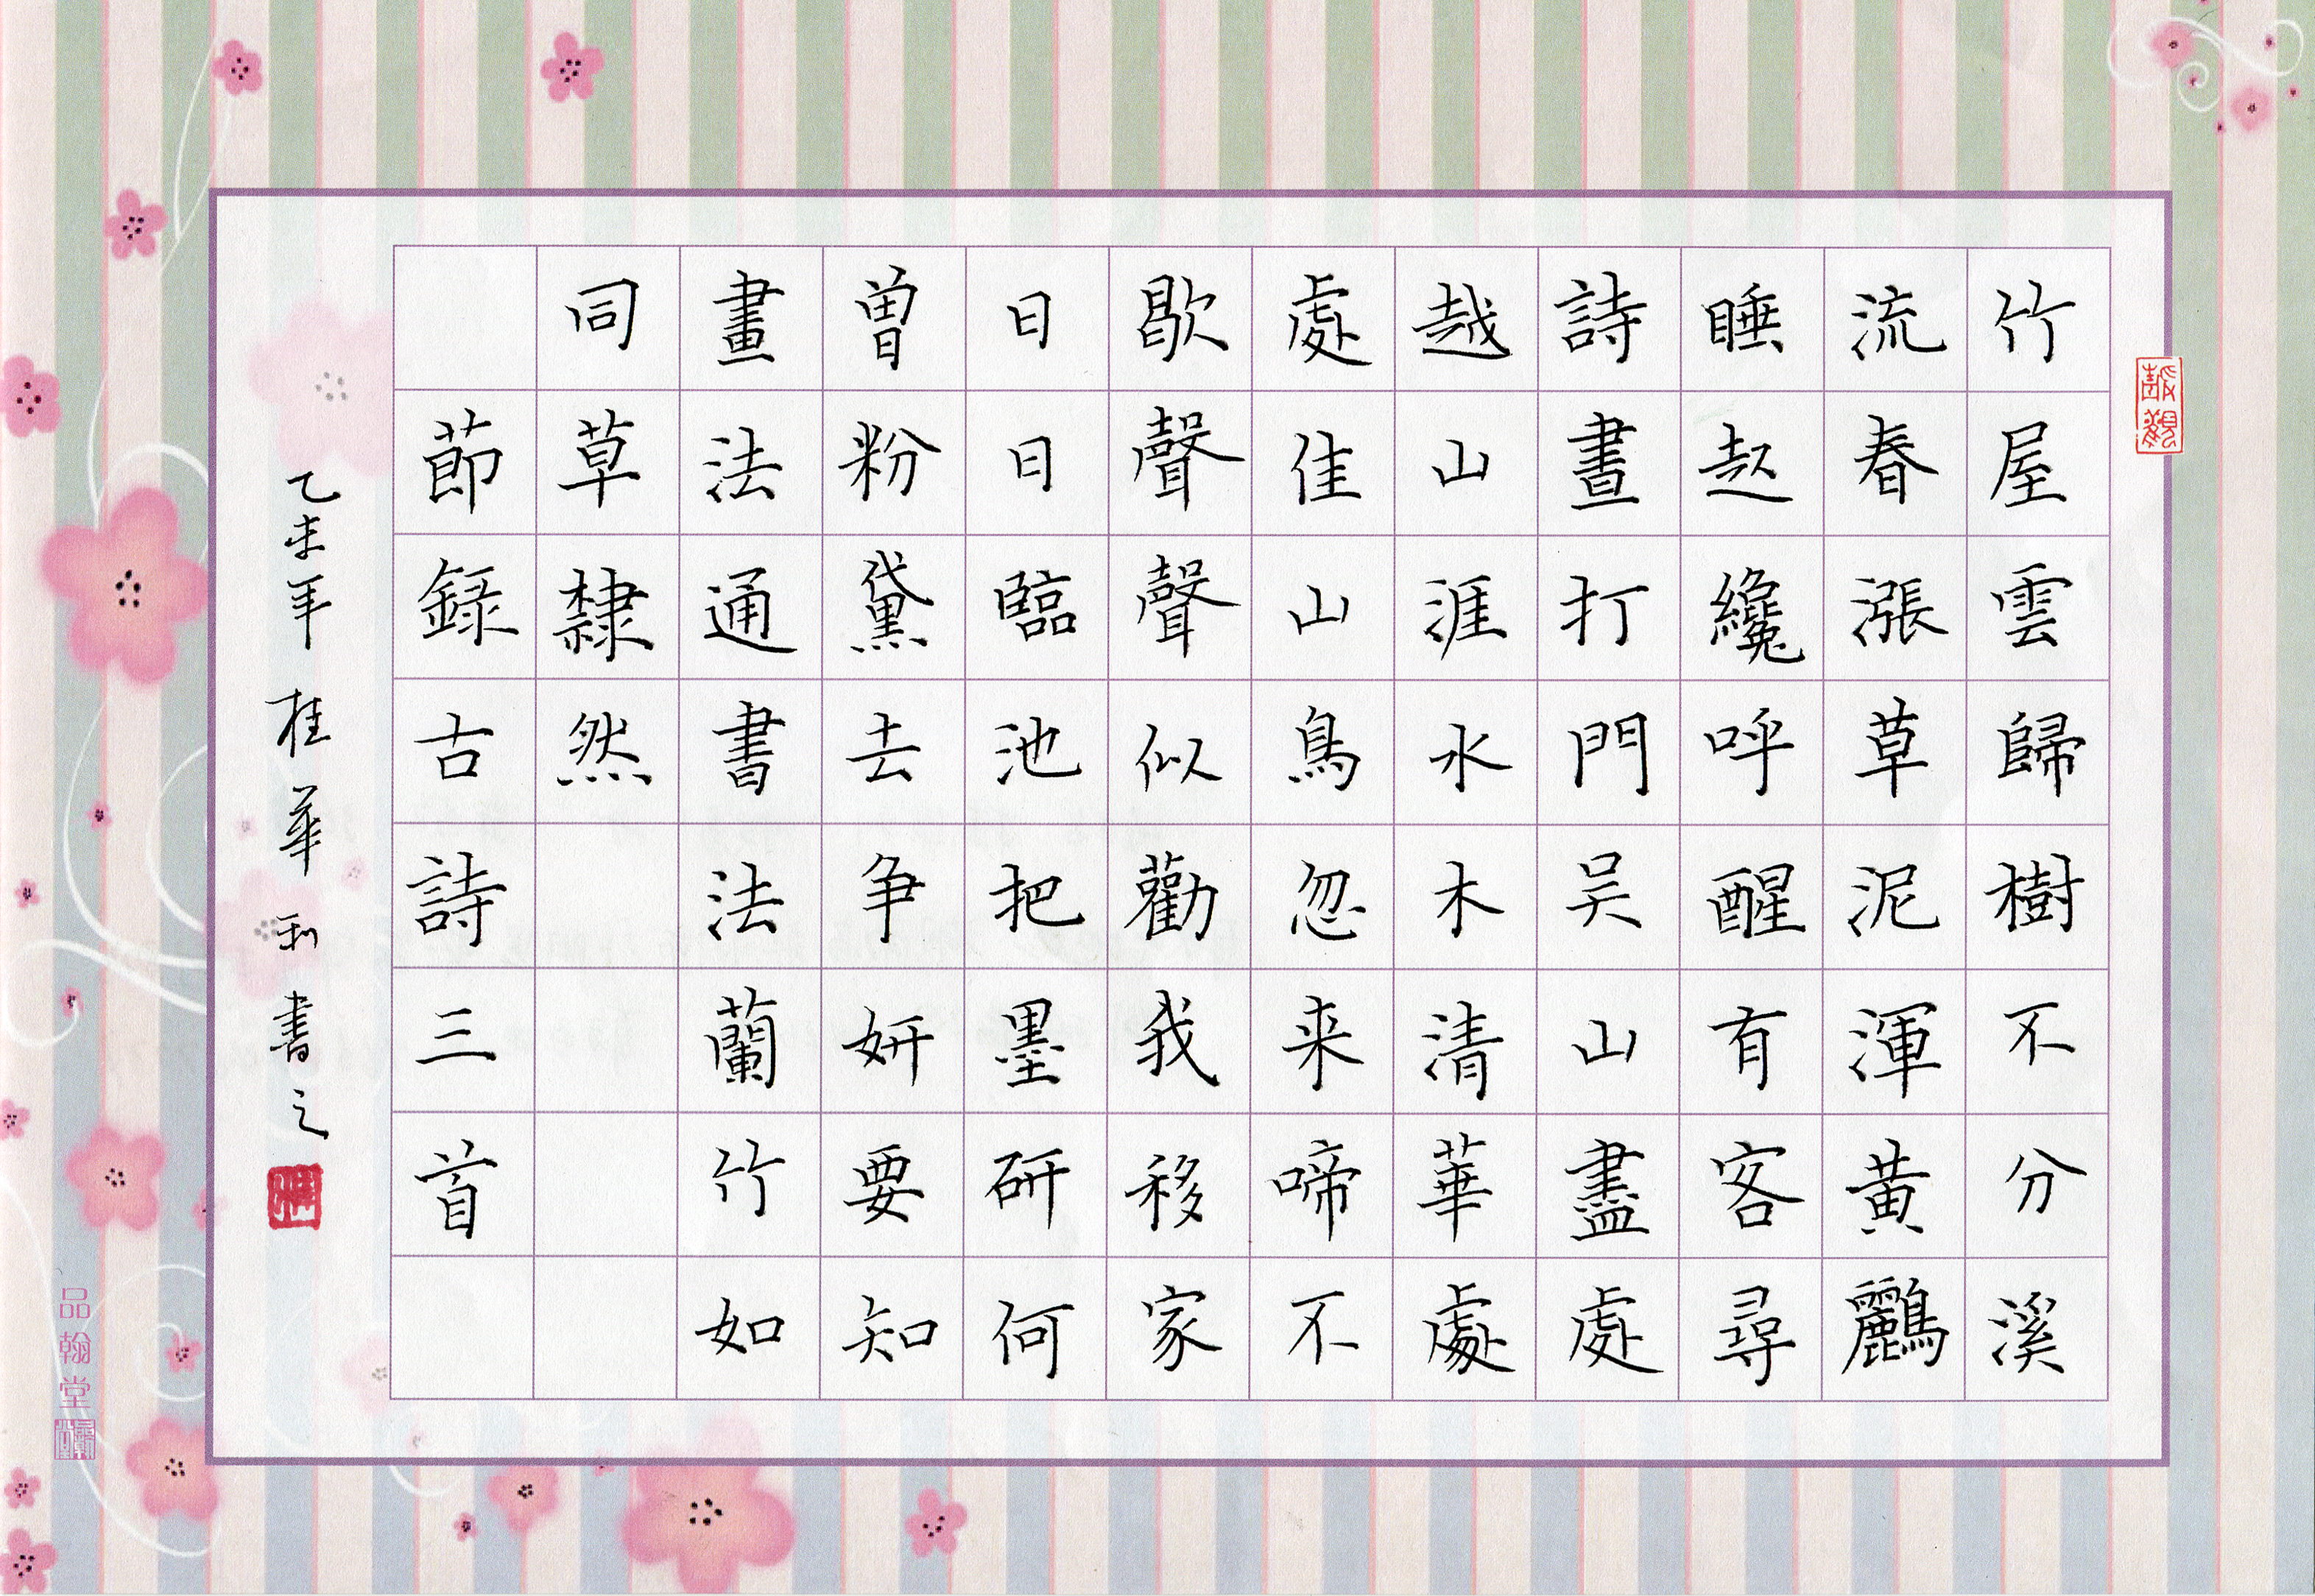 竹屋雲歸樹不分溪
流春漲草泥渾黃鸝
睡起纔呼醒有客尋
詩晝打門吴山盡處
越山涯水木清華處
處佳山鳥忽来啼不
歇聲聲似勸我移家
日日臨池把墨研何
曾粉黛去争妍要知
畫法通書法蘭竹如
同草隸然
節録古詩三首
乙未年 桂華利書之
品翰堂